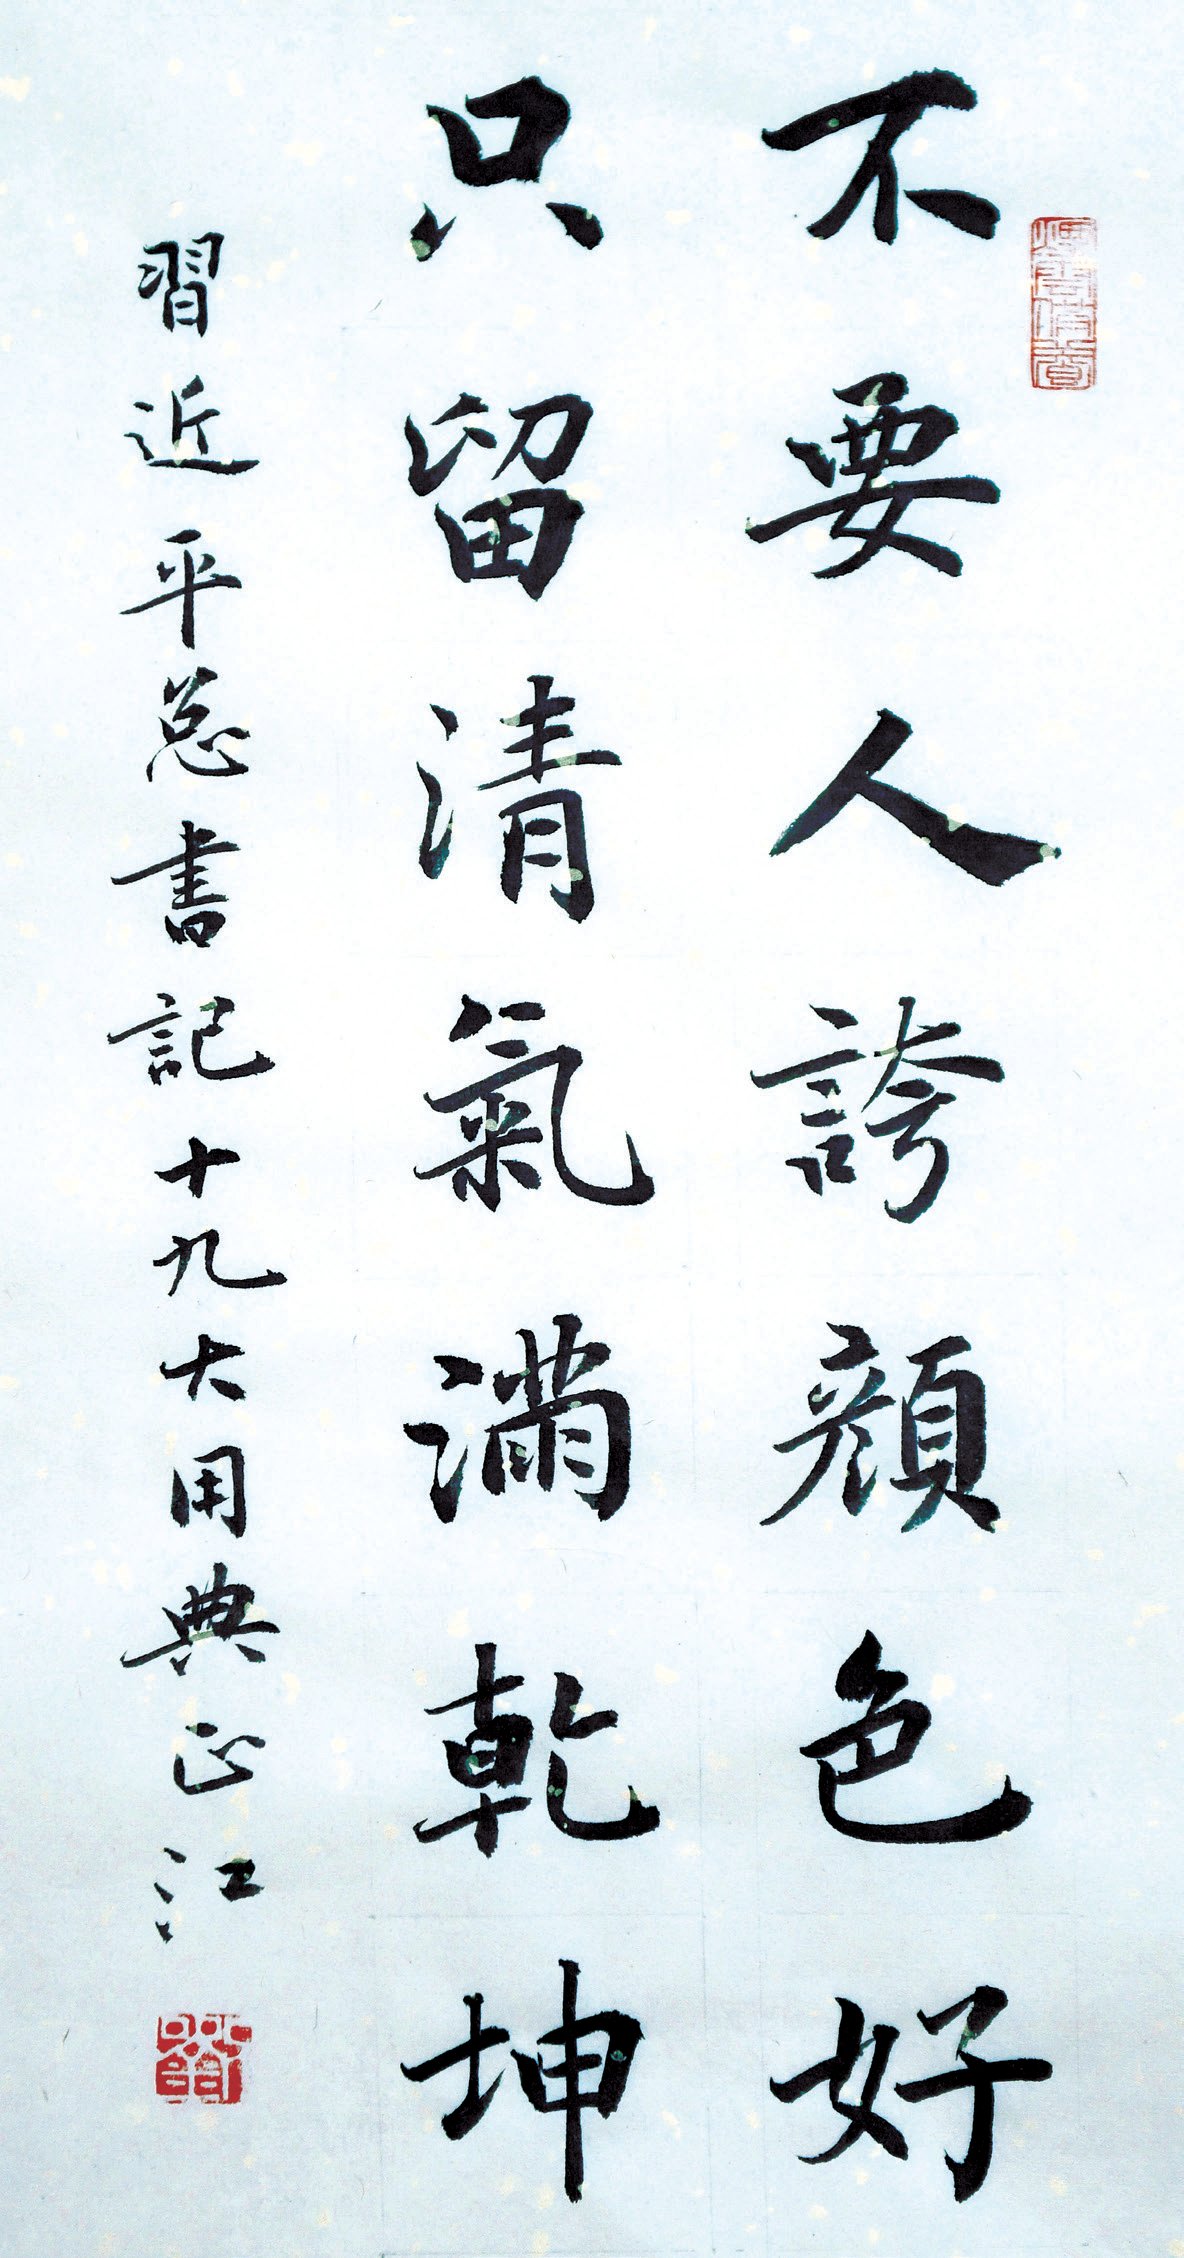 不要人誇顏色好
只留清氣滿乾坤
習近平总書記十九大用典正江